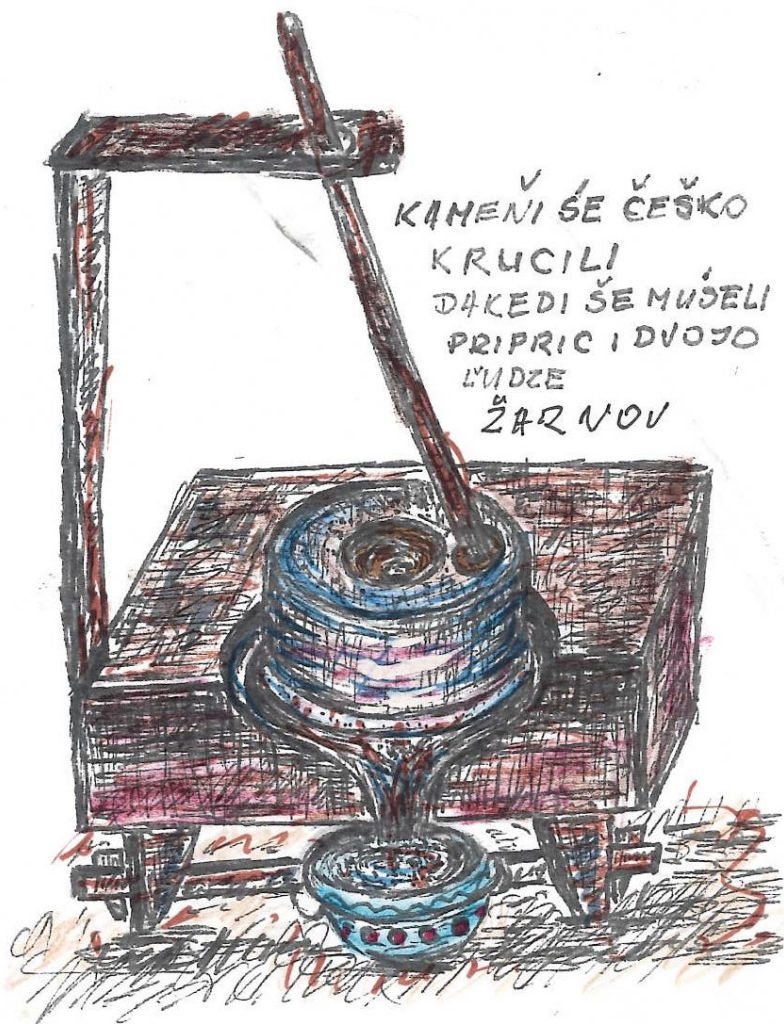 KAMEŇI ŚE ČEŠKO
KRUCILI
DAKEDI ŠE MUŚELI
PRIPRIC I DVOJO
ĽUDZE
ŽARNOV